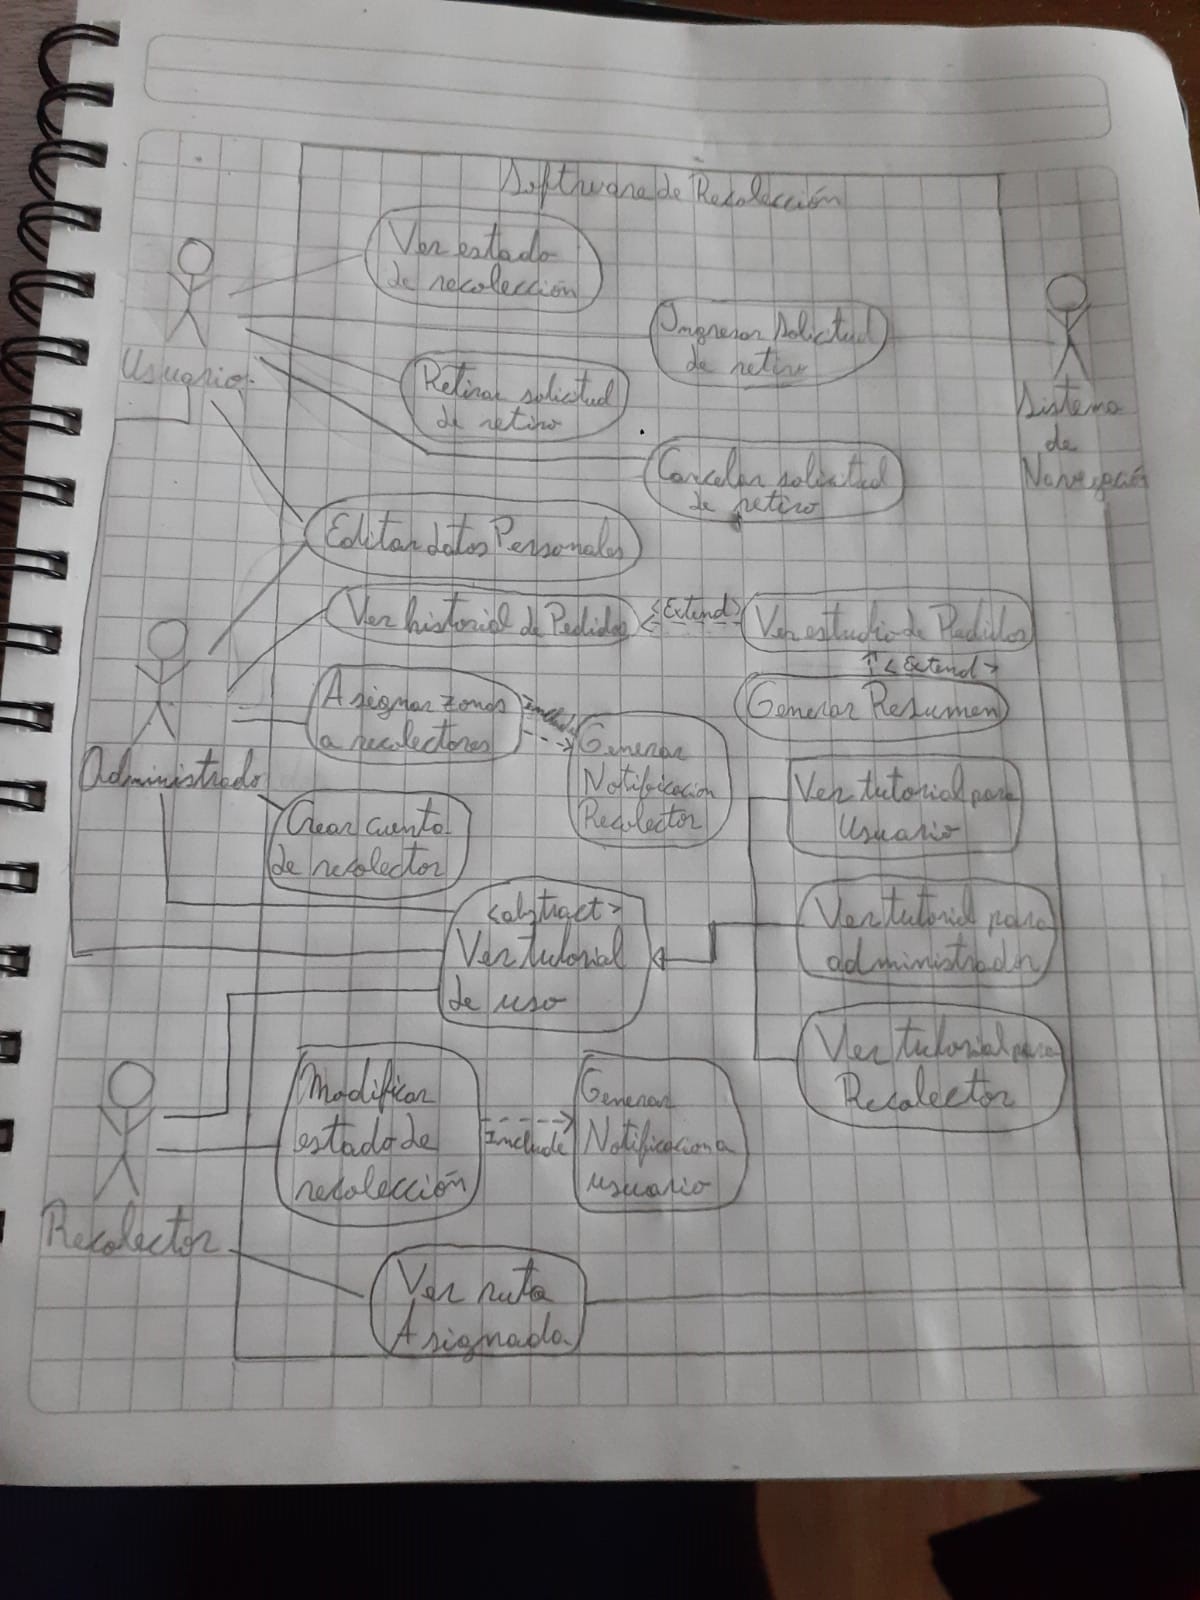 Software de Recolección
Ver estado
de recolección
Ingresar solicitud
de retiro
Usuario
Retirar solicitud
de retiro
Sistema
de
Navegación
Cancelar solicitud
de retiro
Editar datos Personales
Ver historial de Pedidos
<Extend>
Ver estudio de Pedidos
<Extend>
Asignar zonas
a recolectores
Include
Generar Resumen
Generar
Notificacion
Recolector
Administrado
Ver tutorial para
Usuario
Crear cuenta
de recolector
<abstract>
Ver tutorial
de uso
Ver tutorial para
administrador
Ver tutorial para
Recolector
Modificar
estado de
recolección
Include
Generar
Notificacion a
usuario
Recolector
Ver ruta
Asignada